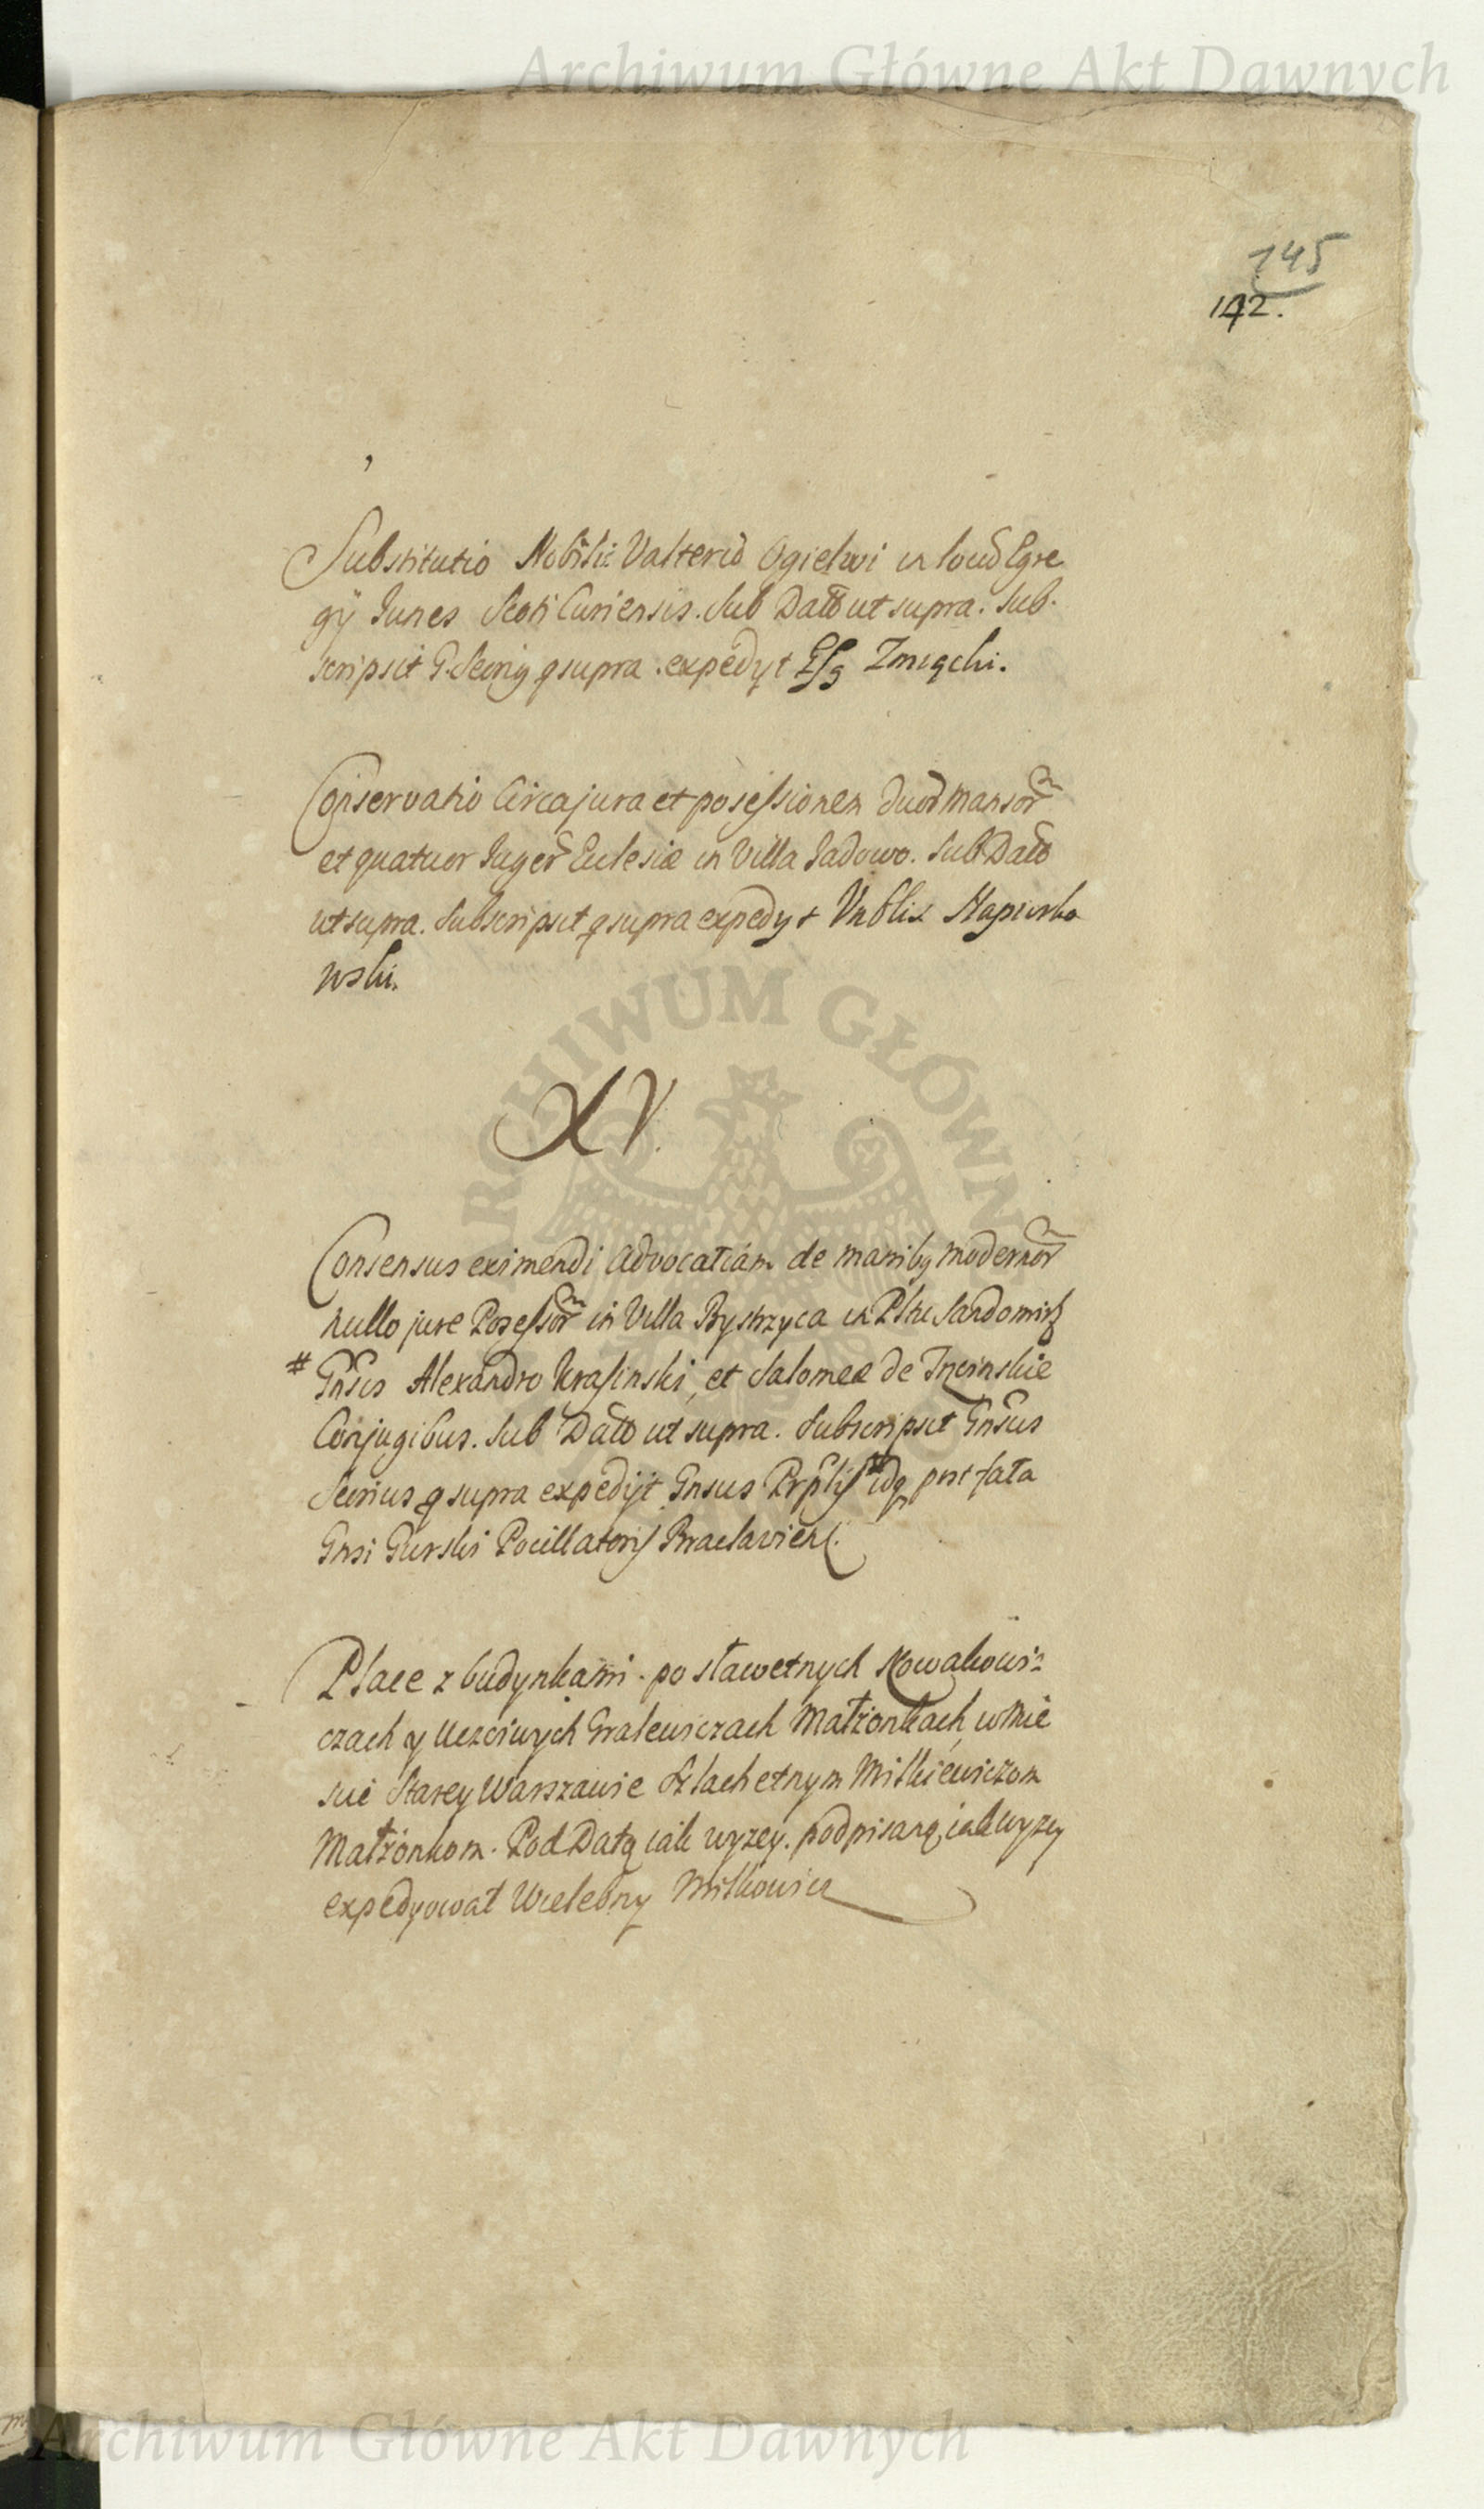 Archiwum Główne Akt Dawnych
145
142.
Substitutio Nobilis Valterio Ogielwi in locũ Egre
gÿ Junes Scoti Curiensis. Sub Datõ ut supra. Sub-
scripsit G. Secrig q supra. expedyt Zmęcki.
Conservatio Circa jura et posessionem duor mansor
et quatuor Juger Eclesiæ in Villa Jadowo. Sub Datõ
ut supra. Subscripsit q supra expedyt Vnblis Napiorko
wski.
ARCHIWUM GŁÓWN
XV.
Consensus eximendi advocatiam de manibq modernor
nullo jure Posessor in Villa Bystrzyca in Pltu Sandomir
# Gnsis Alexandro Krasinski, et Salomeæ de Trcinskie
Conjugibus. Sub Datõ ut supra. Subscripsit Gnsus
Secrius q supra expedijt Gnsus # idq post fata
Gnsi Gurski Pocillatoris Braclaviens.
Place z budynkami. po sławetnych Nowakowi-
czach y Uczciwych Gralewiczach Małżonkach, w Mie
scie Starey Warszawie Szlachetnym Milkiewiczom
Małżonkom. Pod Datą iak wyzey. podpisano iak wyzey
expedyował Wielebny Milkowicz
Archiwum Główne Akt Dawnych